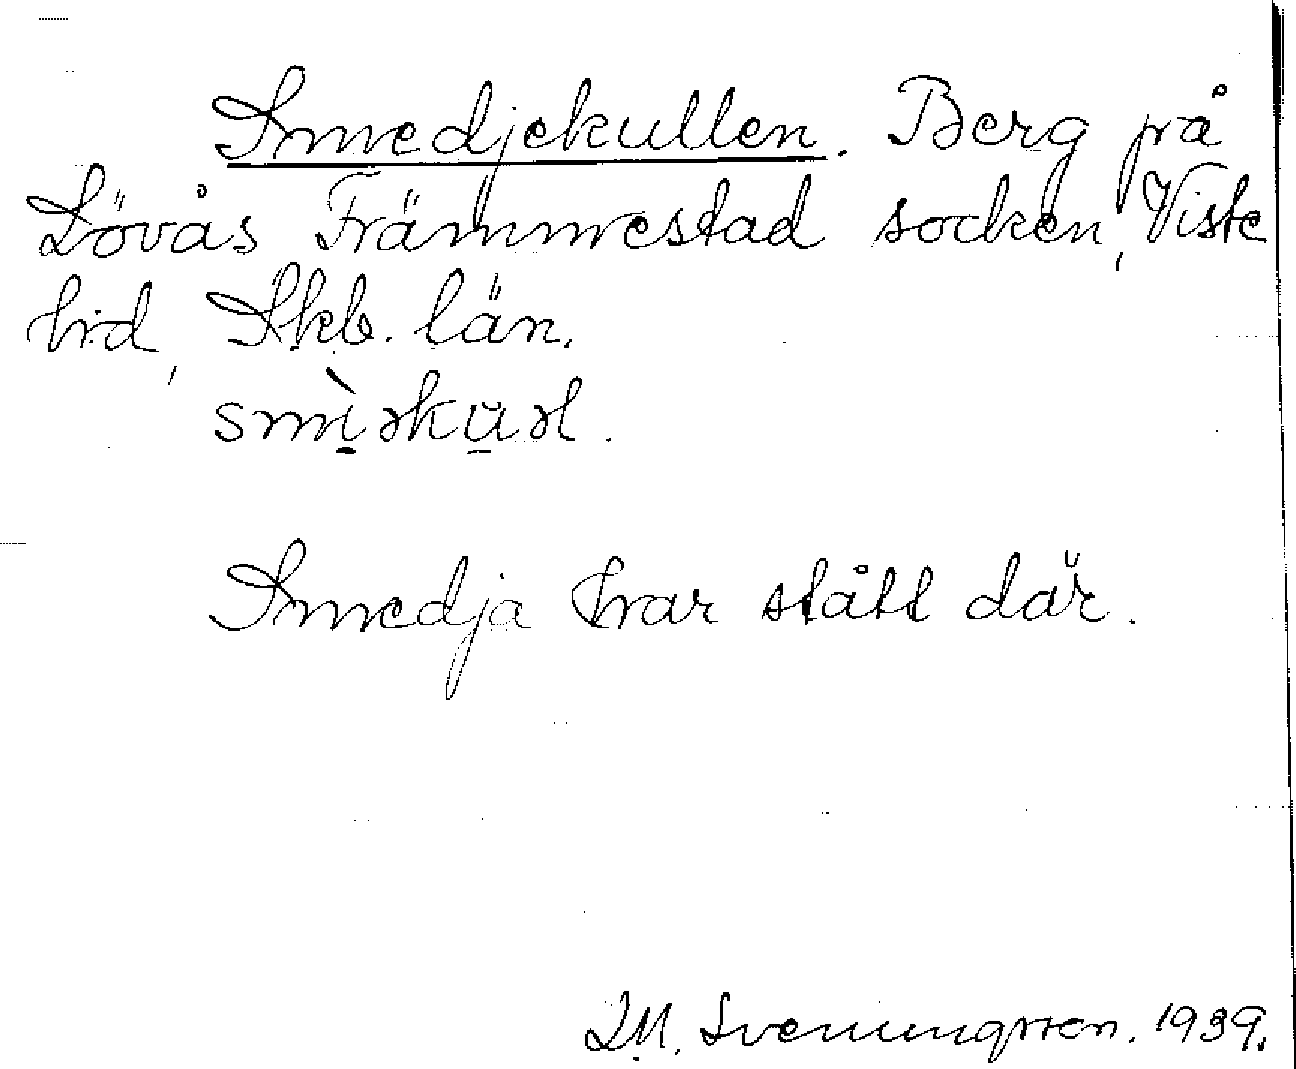 Smedjekullen. Berg på
Lövås Främmestad socken, Viste
hd, Skb. län.
smì̱əku̱əl.
Smedja har stått där.
I.M. Svenungsson. 1939.